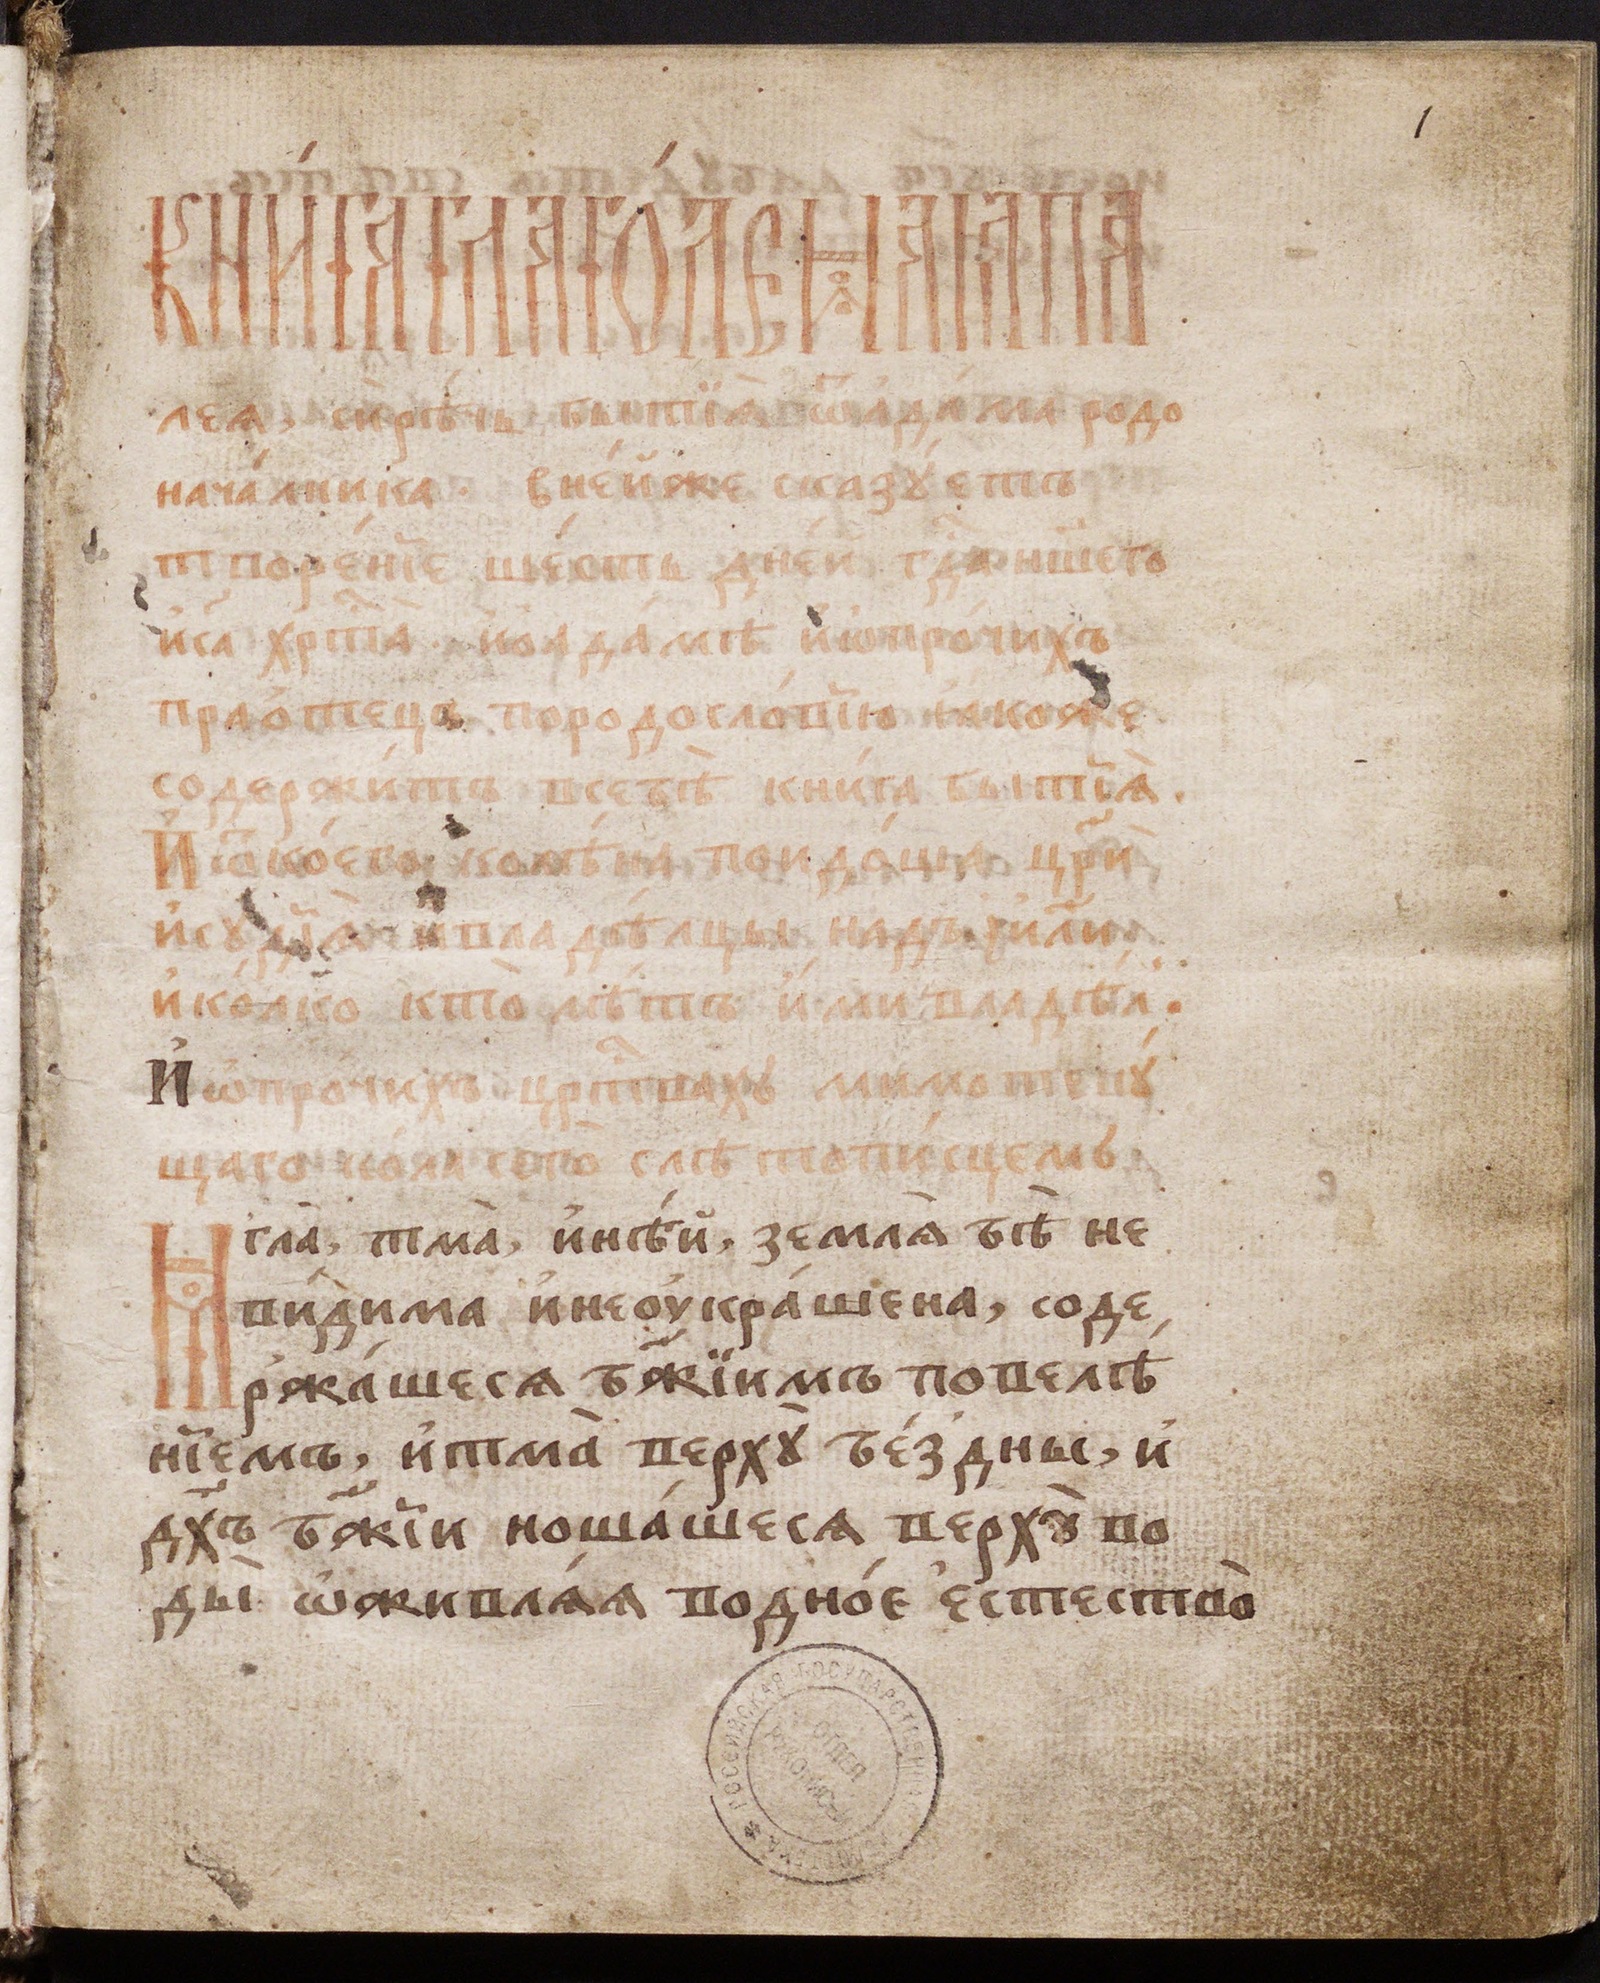 1
КНИ́ГА ГЛАГО́ЛЕМАꙖ ПА
леꙗ, си́рѣчь бытїѧ̀ ѿ а҆да́ма родо
нача́лника. в не́йже сказꙋ́етъ
творе́нїе ше́сть дне́й гдⷭ҇а нш҃его
и҆са хрⷭ҇та̀. и҆ о а҆да́мѣ и҆ ѡ҆ про́чихъ
прао́тецъ по родосло́вїю ꙗ҆коже
содержи́тъ в себѣ̀ кни́га бытїѧ̀.
И҆ ѿ ко́его колѣ́на поидо́ша цр҃ѝ
и҆ сꙋдїѧ̀ и владѣ́лцы над ї҆и҃ли
и҆ ко́лко кто̀ лѣ́тъ и҆́ми владѣ́л.
И҆ ѡ҆ про́чихъ црⷭ҇твахъ мимотекꙋ́
щаго
мгла̀, тма̀, и҆ нѣ́й, землѧ̀ бѣ̀ не
ви́дима и҆ неоу҆кра́шена, соде
ржа́шесѧ бж҃їимъ повелѣ́
нїемъ, и҆ тма̀ верхꙋ̀ бе́здны, и҆
дх҃ъ бж҃їи ноша́шесѧ верхꙋ̀ во
ды̀ ѡ҆живлѧ́ѧ водно́е є҆стество̀
РОССИЙСКАЯ ГОСУДАРСТВЕННАЯ БИБЛИОТЕКА
ОТДЕЛ
РУКОПИСЕЙ